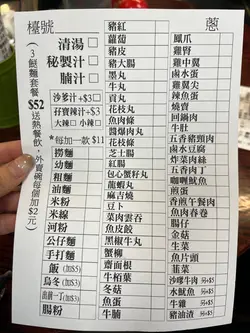 檯號
蔥
(3餸麵套餐 $52 送熱餐飲,外賣碗每個加2元)
清湯
秘製汁
腩汁
沙爹汁+$3
孖寶辣汁+$3
大辣□ 小辣□
*每加一款 $11
撈麵
幼麵
粗麵
油麵
米粉
米線
河粉
公仔麵
手打麵
飯(加$5)
烏冬(加$3)
出前一丁(加$3)
腸粉
豬紅
蘿蔔
豬皮
豬大腸
墨丸
貢丸
花枝丸
魚肉條
醬爆肉丸
花枝條
芝士腸
紅腸
包心蟹籽丸
龍蝦丸
麻吉燒
豆卜
菜肉雲吞
魚皮餃
黑椒牛丸
蟹柳
齋面根
牛栢葉
冬菇
魚蛋
牛腩
鳳爪
雞腎
雞中翼
鹵水蛋
雞尖翼
辣魚蛋
燒賣
回鍋腸
牛肚
五香豬頸肉
鹵水豆腐
炸菜肉絲
五香肉丁
咖喱魷魚
煎蛋
香煎午餐肉
魚肉春卷
腸仔
金菇
生菜
魚片頭
韮菜
沙嗲牛肉 另+$5
水魷魚 另+$5
牛雜 另+$5
豬油渣 另+$5